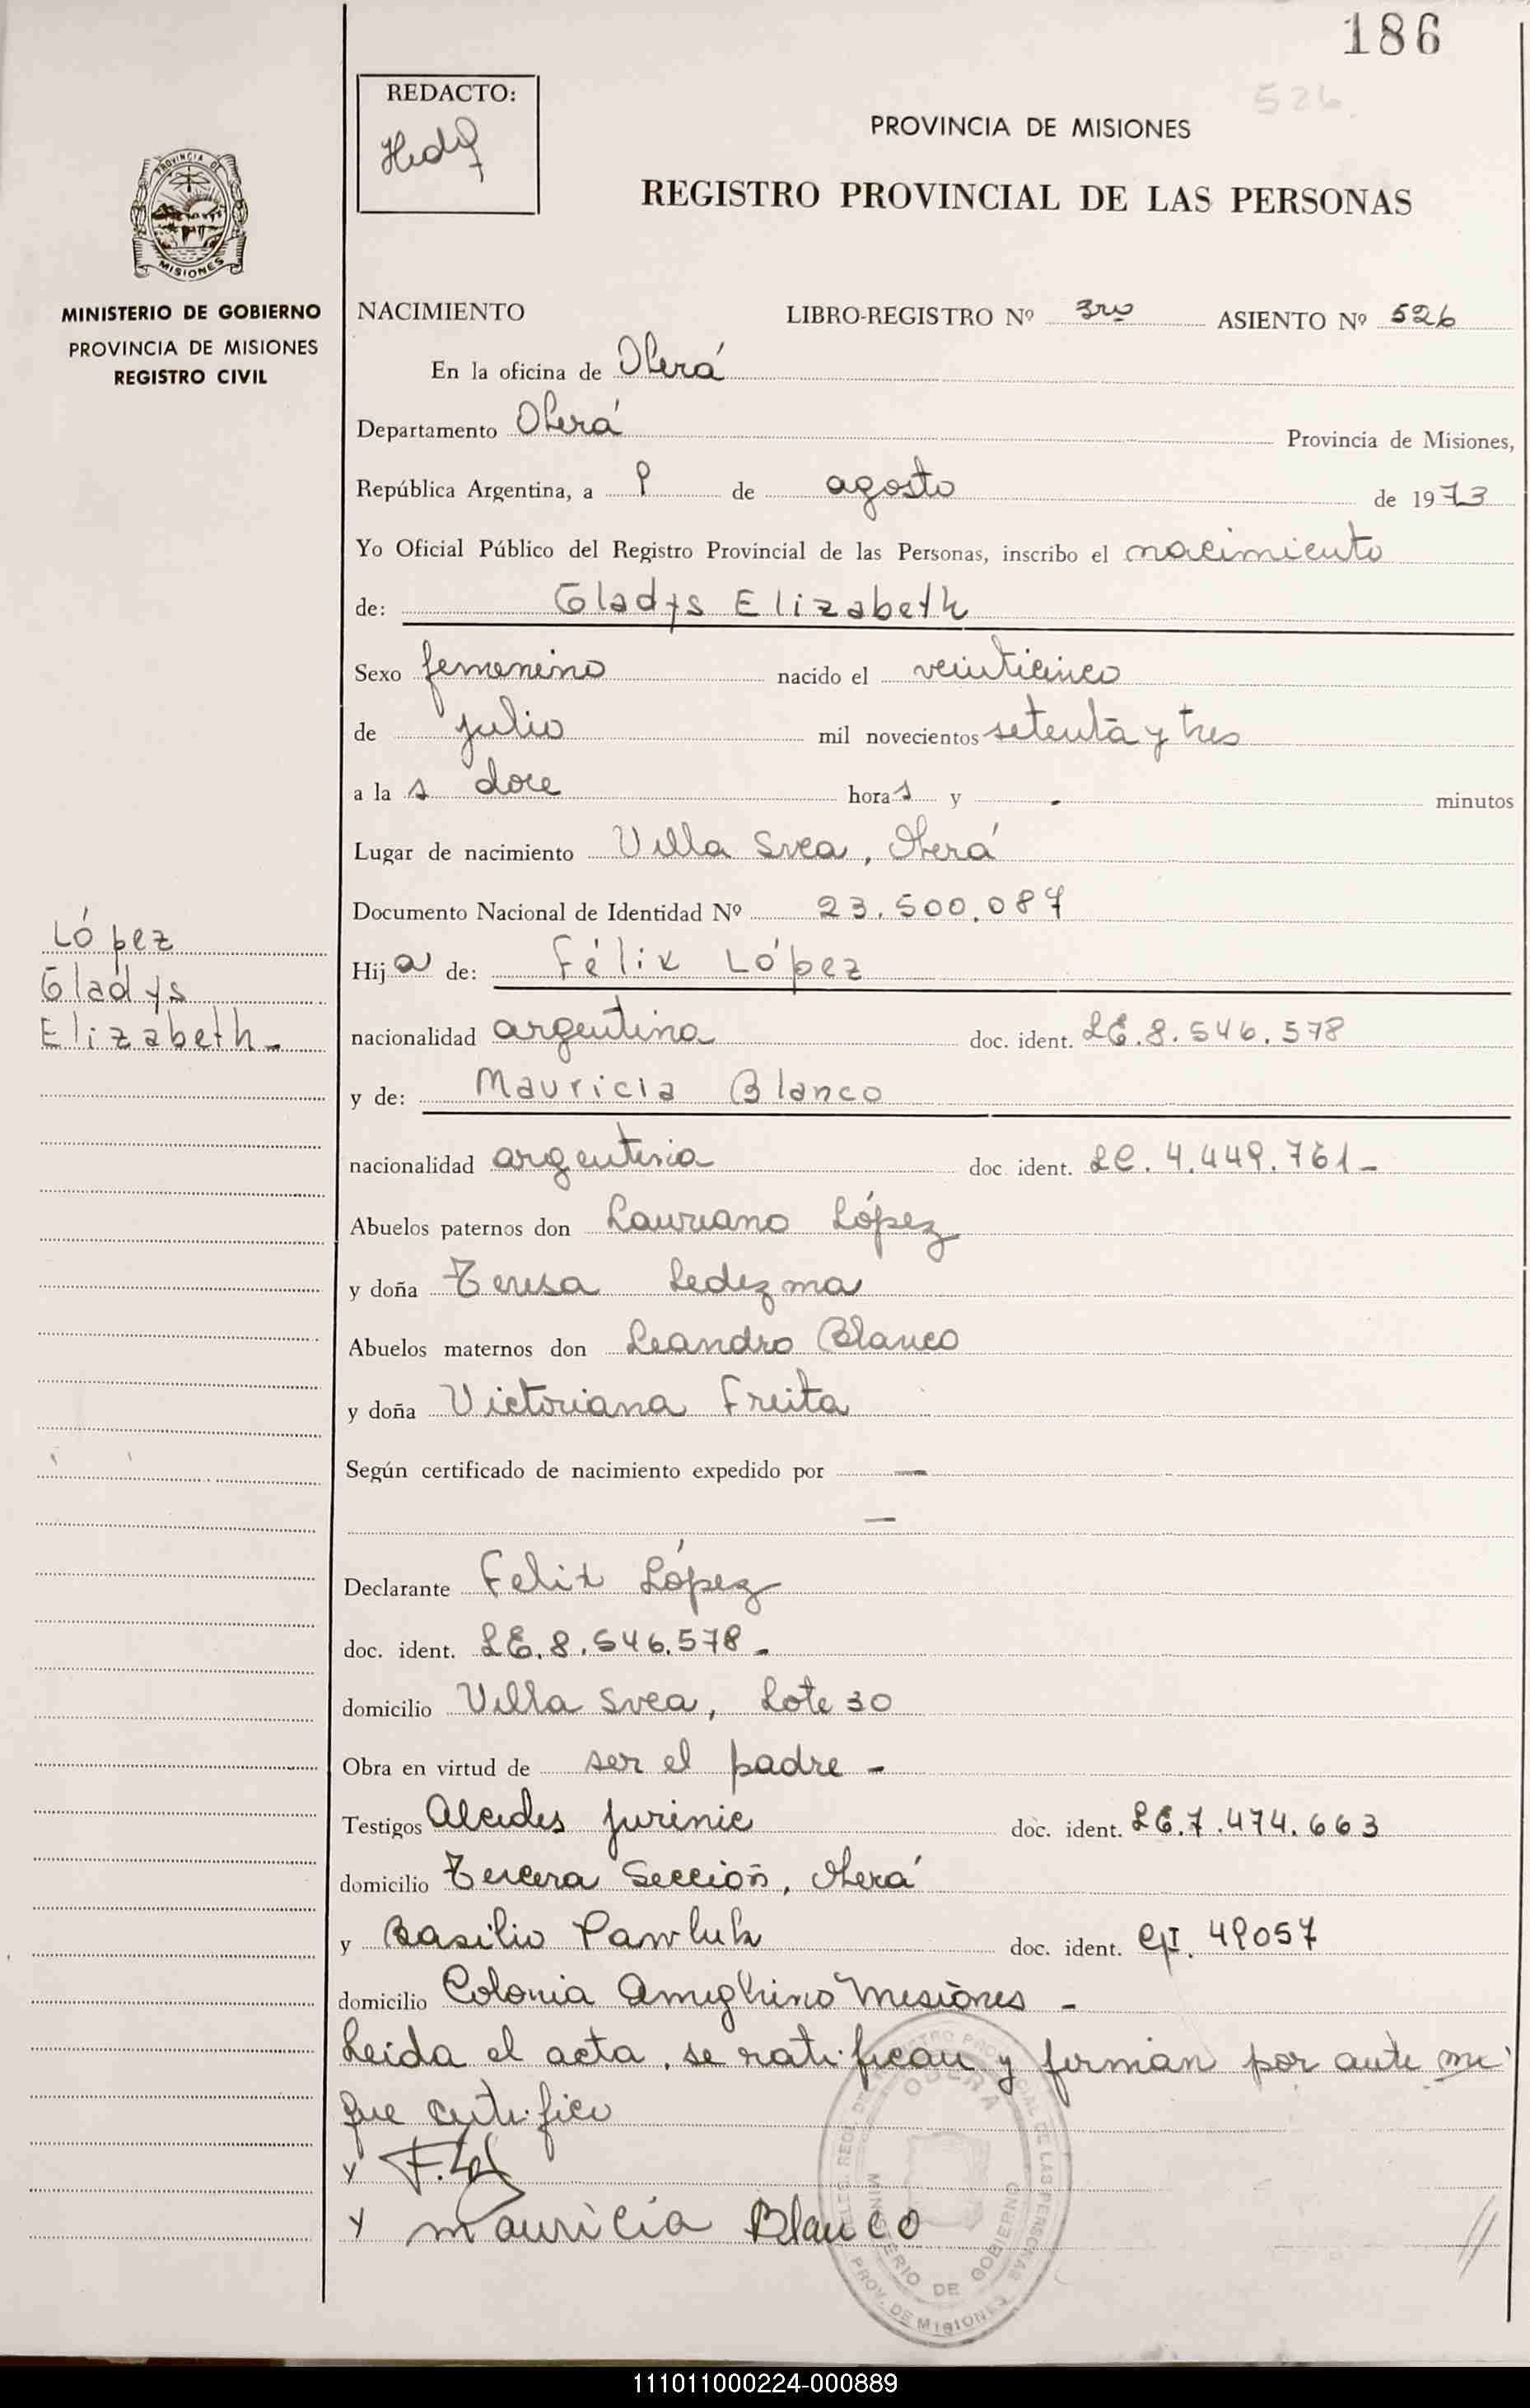 186
526
REDACTO:
PROVINCIA DE MISIONES
REGISTRO PROVINCIAL DE LAS PERSONAS
PROVINCIA DE
MISIONES
MINISTERIO DE GOBIERNO
PROVINCIA DE MISIONES
REGISTRO CIVIL
NACIMIENTO LIBRO-REGISTRO Nº 3ro ASIENTO Nº 526
En la oficina de Oberá
Departamento Oberá Provincia de Misiones,
República Argentina, a 9 de agosto de 1973
Yo Oficial Público del Registro Provincial de las Personas, inscribo el nacimiento
de: Gladys Elizabeth
Sexo femenino nacido el veinticinco
de julio mil novecientos setenta y tres
a la s doce hora s y - minutos
Lugar de nacimiento Villa Svea, Oberá
Documento Nacional de Identidad Nº 23.500.087
López
Gladys
Elizabeth-
Hij a de: Félix López
nacionalidad argentina doc. ident. LE.8.546.578
y de: Mauricia Blanco
nacionalidad argentina doc. ident. LC.4.449.761-
Abuelos paternos don Lauriano López
y doña Teresa Ledezma
Abuelos maternos don Leandro Blanco
y doña Victoriana Freita
Según certificado de nacimiento expedido por —
—
Declarante Felix López
doc. ident. LE.8.546.578-
domicilio Villa Svea, Lote 30
Obra en virtud de ser el padre -
Testigos Alcides Jurinic doc. ident. LE.7.474.663
domicilio Tercera Sección, Oberá
y Basilio Pawluk doc. ident. CI. 49057
domicilio Colonia Ameghino Misiones -
Leida el acta, se ratifican y firman por ante mi
que certifico
x F.
x mauricia Blanco
OBERA
MINISTERIO DE GOBIERNO
PROV. DE MISIONES
111011000224-000889